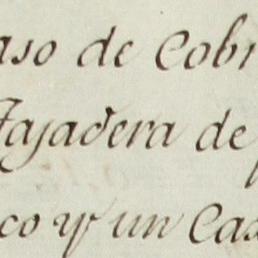 aso de Cobr
Tajadera de
co y un Cas